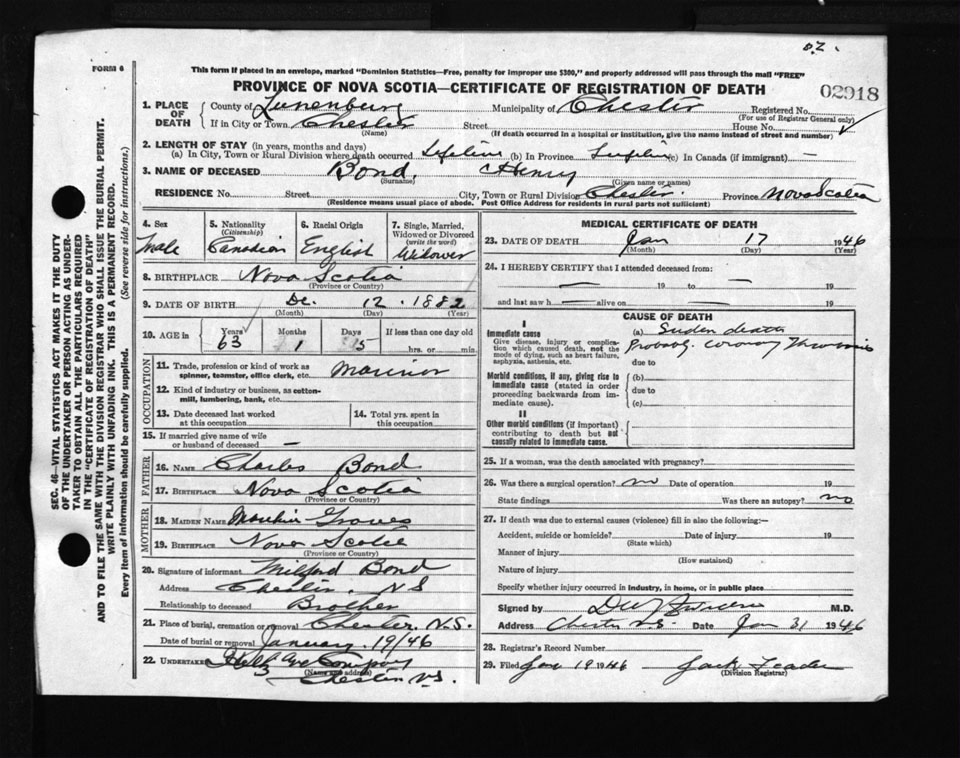 02.
FORM 6
This form if placed in an envelope, marked "Dominion Statistics—Free, penalty for improper use $300," and properly addressed will pass through the mail "FREE"
PROVINCE OF NOVA SCOTIA—CERTIFICATE OF REGISTRATION OF DEATH
02918
1. PLACE OF DEATH
County of Lunenburg Municipality of Chester Registered No.
(For use of Registrar General only)
If in City or Town Chester Street House No.
(Name) (If death occurred in a hospital or institution, give the name instead of street and number)
2. LENGTH OF STAY (in years, months and days)
(a) In City, Town or Rural Division where death occurred Lifetime (b) In Province Lifetime (c) In Canada (if immigrant) —
3. NAME OF DECEASED Bond, Henry
(Surname) (Given name or names)
RESIDENCE No. Street City, Town or Rural Division Chester Province Nova Scotia
(Residence means usual place of abode. Post Office Address for residents in rural parts not sufficient)
4. Sex Male
5. Nationality (Citizenship) Canadian
6. Racial Origin English
7. Single, Married, Widowed or Divorced (write the word) Widower
8. BIRTHPLACE Nova Scotia
(Province or Country)
9. DATE OF BIRTH De. 12. 1882
(Month) (Day) (Year)
10. AGE in Years 63 Months 1 Days 5 If less than one day old
hrs. or min.
OCCUPATION
11. Trade, profession or kind of work as spinner, teamster, office clerk, etc. Marinor
12. Kind of industry or business, as cotton-mill, lumbering, bank, etc.
13. Date deceased last worked at this occupation
14. Total yrs. spent in this occupation
15. If married give name of wife or husband of deceased —
FATHER
16. NAME Charles Bond
17. BIRTHPLACE Nova Scotia
(Province or Country)
MOTHER
18. MAIDEN NAME Groves
19. BIRTHPLACE Nova Scotia
(Province or Country)
20. Signature of informant Milford Bond
Address Chester, N S
Relationship to deceased Brother
21. Place of burial, cremation or removal Chester N.S.
Date of burial or removal January 19/46
22. UNDERTAKER Company
(Name and address)
Chester N.S.
MEDICAL CERTIFICATE OF DEATH
23. DATE OF DEATH Jan 17 1946
(Month) (Day) (Year)
24. I HEREBY CERTIFY that I attended deceased from:
— 19 to — 19
and last saw h — alive on — 19
CAUSE OF DEATH
I
Immediate cause
Give disease, injury or complication which caused death, not the mode of dying, such as heart failure, asphyxia, asthenia, etc.
(a) Suden death
Probably coronary Thrombosis
due to
Morbid conditions, if any, giving rise to immediate cause (stated in order proceeding backwards from immediate cause).
(b)
due to
(c)
II
Other morbid conditions (if important) contributing to death but not causally related to immediate cause.
25. If a woman, was the death associated with pregnancy?
26. Was there a surgical operation? no Date of operation 19
State findings Was there an autopsy? no
27. If death was due to external causes (violence) fill in also the following:—
Accident, suicide or homicide? Date of injury 19
(State which)
Manner of injury
(How sustained)
Nature of injury
Specify whether injury occurred in industry, in home, or in public place
Signed by M.D.
Address Chester N.S. Date Jan 31 1946
28. Registrar's Record Number
29. Filed Jan 19 1946 Jack
(Division Registrar)
SEC. 46—VITAL STATISTICS ACT MAKES IT THE DUTY
OF THE UNDERTAKER OR PERSON ACTING AS UNDER-
TAKER TO OBTAIN ALL THE PARTICULARS REQUIRED
IN THE "CERTIFICATE OF REGISTRATION OF DEATH"
AND TO FILE THE SAME WITH THE DIVISION REGISTRAR WHO SHALL ISSUE THE BURIAL PERMIT.
WRITE PLAINLY WITH UNFADING INK. THIS IS A PERMANENT RECORD.
Every item of information should be carefully supplied. (See reverse side for instructions.)